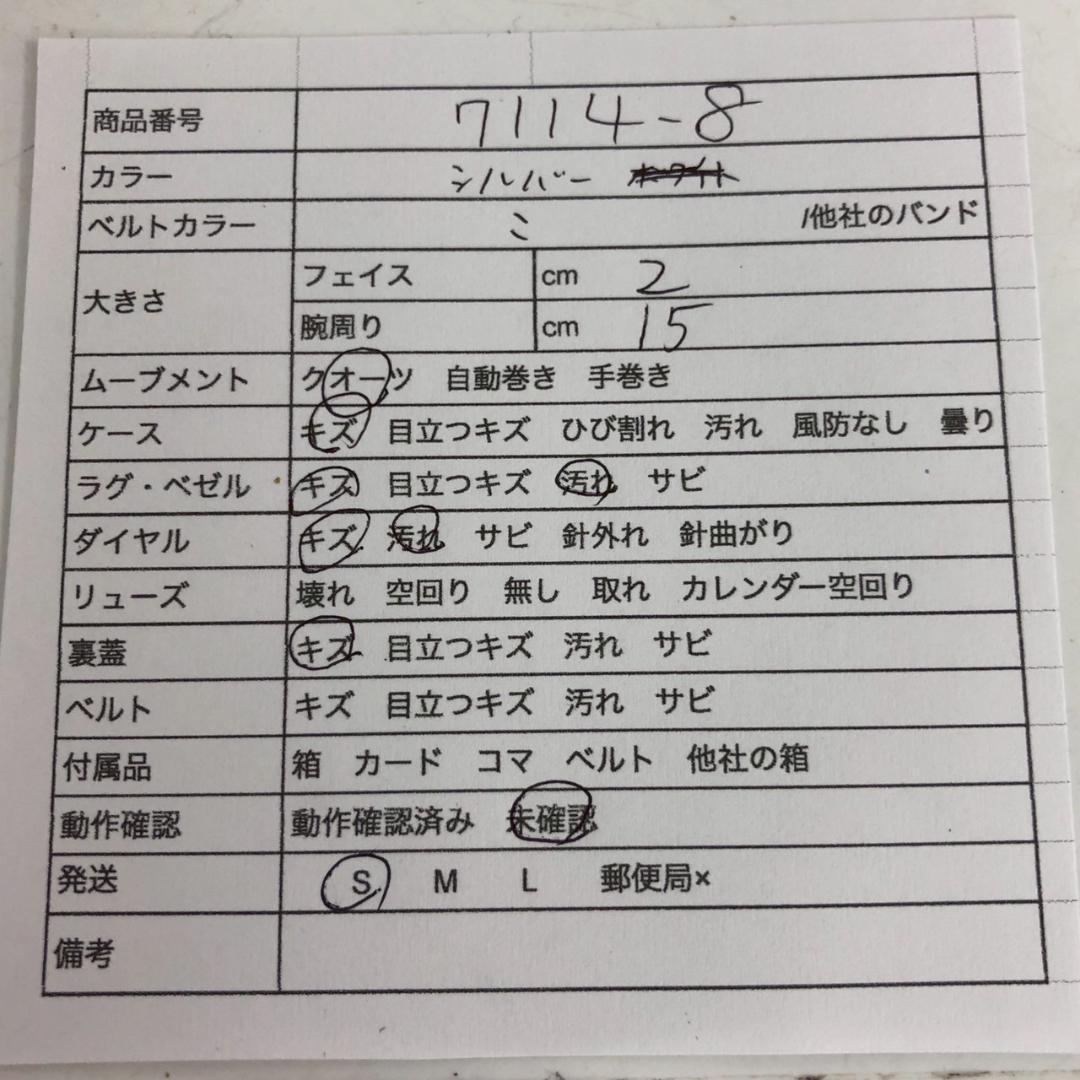 商品番号 7114-8
カラー シルバー ホワイト
ベルトカラー ミ /他社のバンド
大きさ フェイス cm 2
腕周り cm 15
ムーブメント クオーツ 自動巻き 手巻き
ケース キズ 目立つキズ ひび割れ 汚れ 風防なし 曇り
ラグ・ベゼル キズ 目立つキズ 汚れ サビ
ダイヤル キズ 汚れ サビ 針外れ 針曲がり
リューズ 壊れ 空回り 無し 取れ カレンダー空回り
裏蓋 キズ 目立つキズ 汚れ サビ
ベルト キズ 目立つキズ 汚れ サビ
付属品 箱 カード コマ ベルト 他社の箱
動作確認 動作確認済み 未確認
発送 S M L 郵便局×
備考